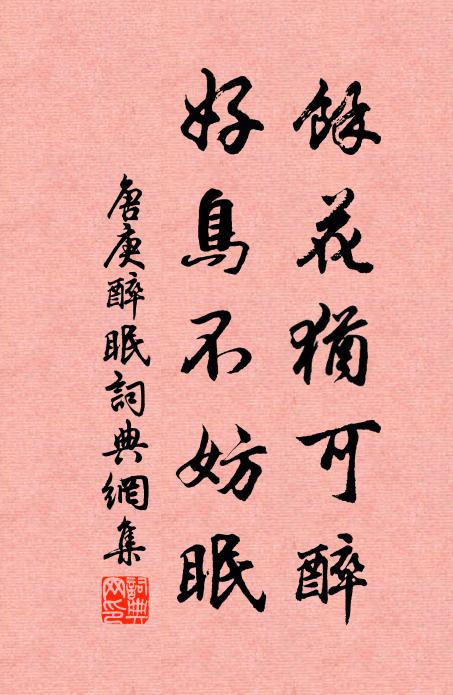 餘花猶可醉
好鳥不妨眠
唐庚醉眠詞典網集
詞典網印